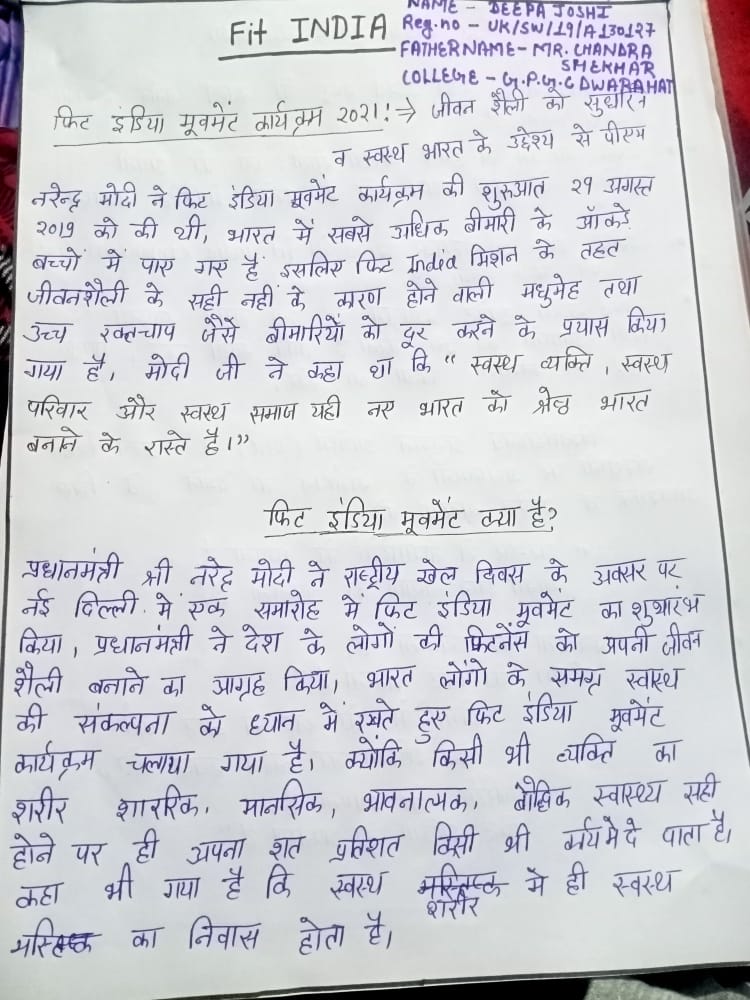 Fit INDIA
NAME - DEEPA JOSHI
Reg.no - UK/SW/19/A130127
FATHERNAME- MR. CHANDRA
SHEKHAR
COLLEGE - G.P.G.C DWARAHAT
फिट इंडिया मूवमेंट कार्यक्रम 2021!→ जीवन शैली को सुधारन
व स्वस्थ भारत के उद्देश्य से पीएम
नरेन्द्र मोदी ने फिट इंडिया मूवमेंट कार्यक्रम की शुरुआत 29 अगस्त
2019 को की थी, भारत में सबसे अधिक बीमारी के आँकडे
बच्चो में पाए गए हैं इसलिए फिट India मिशन के तहत
जीवनशैली के सही नहीं के कारण होने वाली मधुमेह तथा
उच्च रक्तचाप जैसें बीमारियों को दूर करने के प्रयास किया
गया है, मोदी जी ने कहा था कि “ स्वस्थ व्यक्ति, स्वस्थ
परिवार और स्वस्थ समाज यही नए भारत को श्रेष्ठ भारत
बनाने के रास्ते है।”
फिट इंडिया मूवमेंट क्या है?
प्रधानमंत्री श्री नरेंद्र मोदी ने राष्ट्रीय खेल दिवस के अवसर पर
नई दिल्ली में एक समारोह में फिट इंडिया मूवमेंट का शुभारंभ
किया, प्रधानमंत्री ने देश के लोगों की फिटनेंस को अपनी जीवन
शैली बनाने का आग्रह किया, भारत लोंगो के समग्र स्वास्थ
की संकल्पना को ध्यान में रखते हुए फिट इंडिया मूवमेंट
कार्यक्रम चलाया गया है। क्योंकि किसी भी व्यक्ति का
शरीर शाररिक, मानसिक, भावनात्मक, बौद्धिक स्वास्थ्य सही
होने पर ही अपना शत प्रतिशत किसी भी कार्यमे दे पाता है,
कहा भी गया है कि स्वस्थ मस्तिष्क मे ही स्वस्थ
शरीर
मस्तिष्क का निवास होता है,